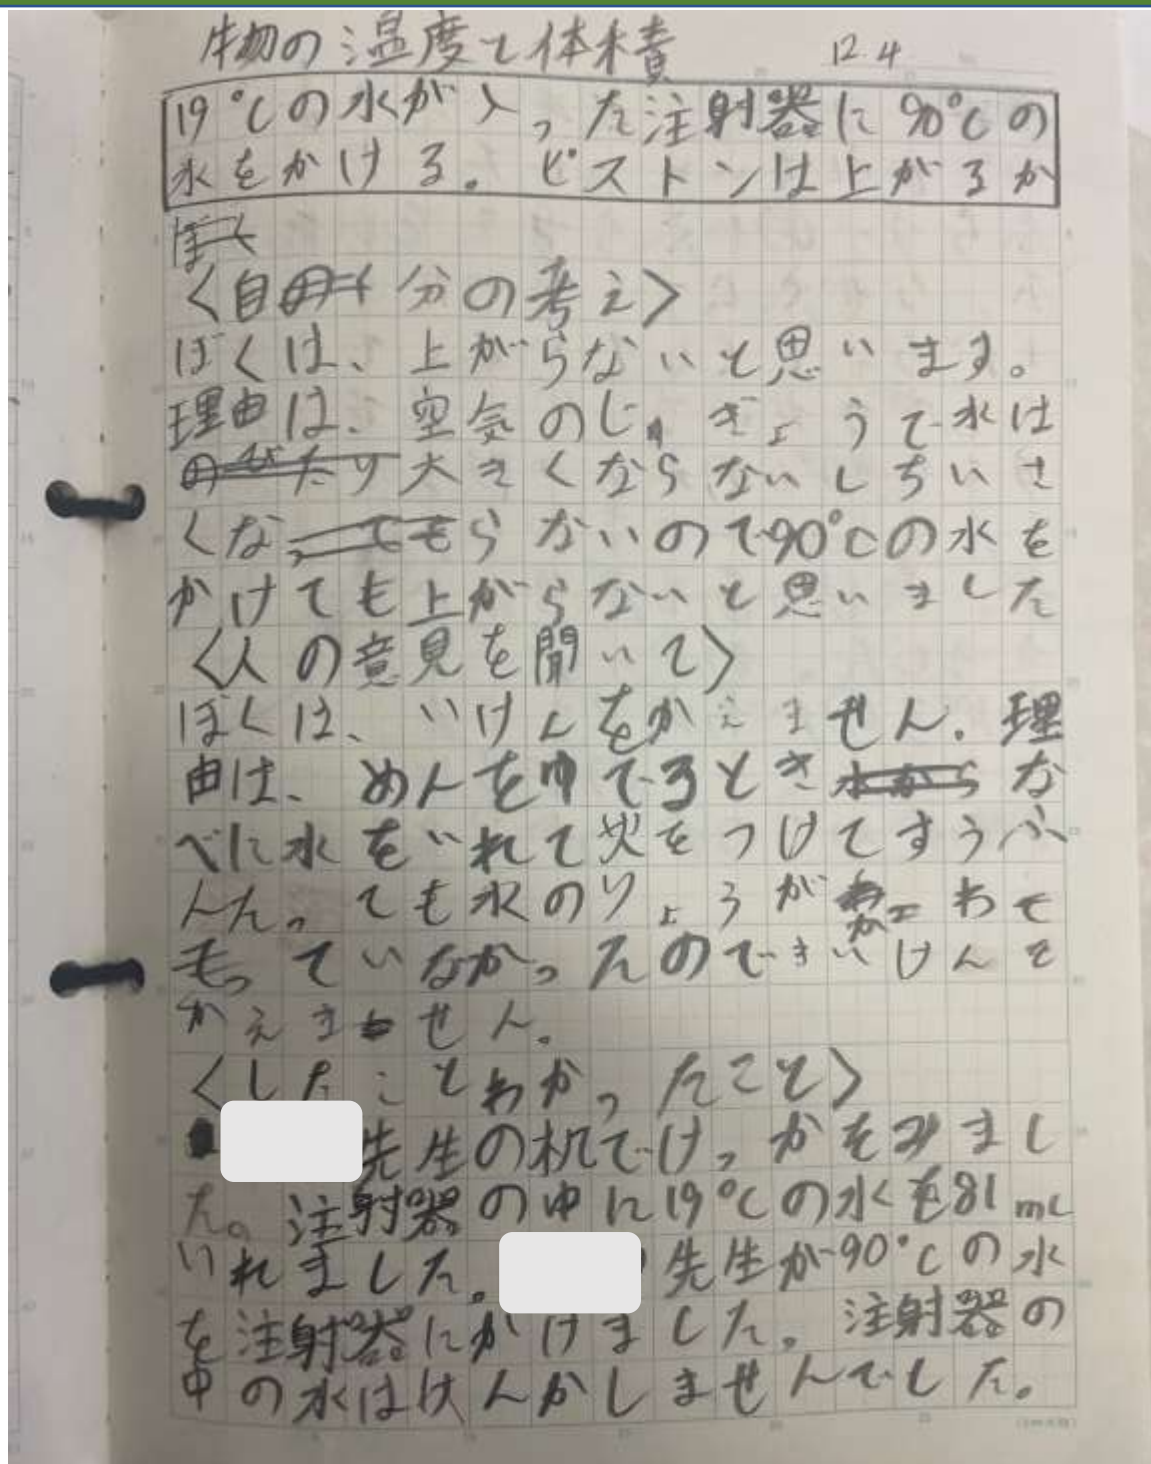 物の温度と体積 12.4
19℃の水が入った注射器に90℃の
水をかける。ピストンは上がるか
ぼく
〈自分の考え〉
ぼくは、上がらないと思います。
理由は、空気のじゅぎょうで水は
のびたり大きくならないしちいさ
くなってもらないので90℃の水を
かけても上がらないと思いました
〈人の意見を聞いて〉
ぼくは、いけんをかえません。理
由は、めんをゆでるときな
べに水をいれて火をつけてすうふ
んたっても水のりょうがかわて
もっていなかったのでいけんを
かえません。
〈したことわかったこと〉
先生の机でけっかをみまし
た。注射器の中に19℃の水を81mL
いれました。先生が90℃の水
を注射器にかけました。注射器の
中の水はけんかしませんでした。